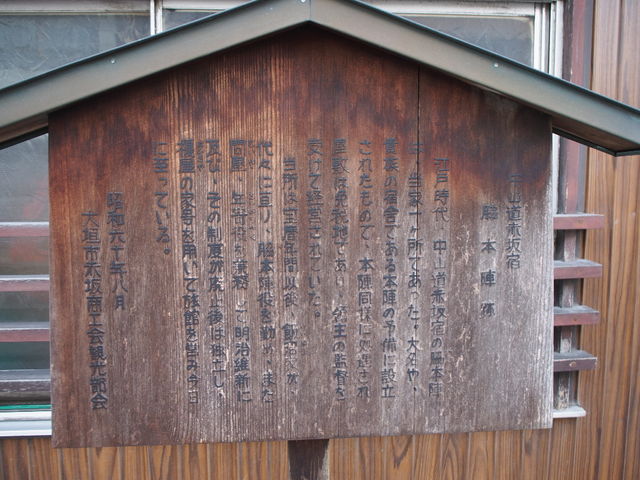 中山道赤坂宿
脇本陣跡
江戸時代、中山道赤坂宿の脇本陣
は、当家一ヶ所であった。大名や、
貴族の宿舎である本陣の予備に設立
されたもので、本陣同様に処遇され
屋敷は免税地であり、領主の監督を
受けて経営されていた。
当所は宝暦年間以後、飯沼家が、
代々に亘り、脇本陣役を勤め、また
問屋、年寄役を兼務し、明治維新に
及び、その制度が廃止後は独立し、
榎屋の家号を用いて旅館を営み今日
に至っている。
昭和六十年八月
大垣市赤坂商工会観光部会